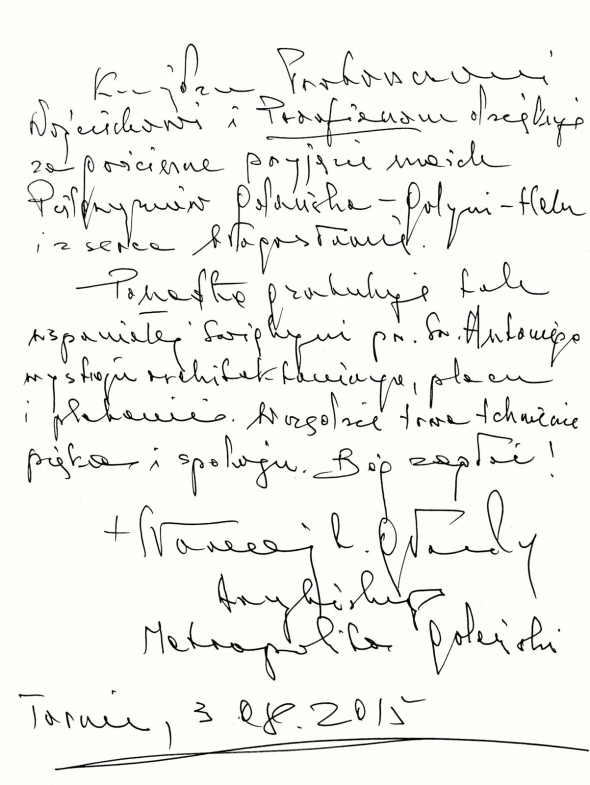 Księdzu Proboszczowi
Wojciechowi i Parafianom dziękuję
za gościnne przyjęcie moich
Pielgrzymów Gdańska – Gdyni – Helu
i z serca błogosławię.
Ponadto gratuluję tak
wspaniałej świątyni pw. Św. Antoniego
wystroju architektonicznego, placu
i plebanii. Wszędzie trwa tchnienie
piękna i spokoju. Bóg zapłać!
+ Sławoj L. Głódź
Arcybiskup
Metropolita Gdański
3.08.2015